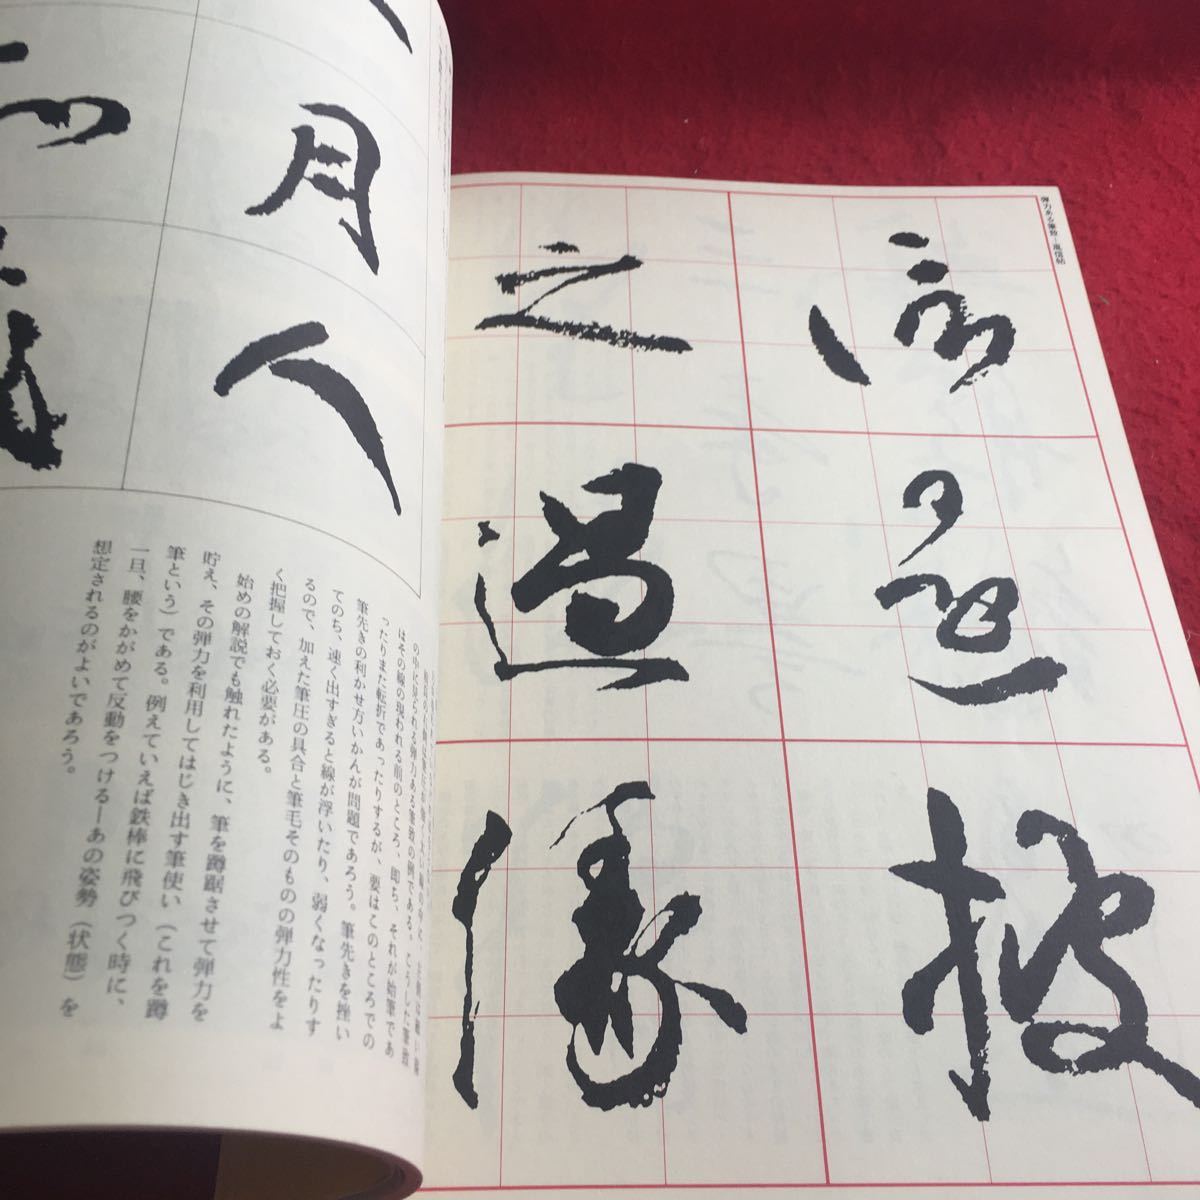 弾力ある筆致―風信帖
披
之過
月人
の中に見られる弾力ある筆致の例である。こうした筆致
はその線の現われる前のところ、即ち、それが始筆であ
ったりまた転折であったりするが、要はこのところでの
筆先きの利かせ方いかんが問題であろう。筆先きを挫い
てのち、速く出すぎると線が浮いたり、弱くなったりす
るので、加えた筆圧の具合と筆毛そのものの弾力性をよ
く把握しておく必要がある。
始めの解説でも触れたように、筆を蹲踞させて弾力を
貯え、その弾力を利用してはじき出す筆使い（これを蹲
筆という）である。例えていえば鉄棒に飛びつく時に、
一旦、腰をかがめて反動をつける―あの姿勢（状態）を
想定されるのがよいであろう。